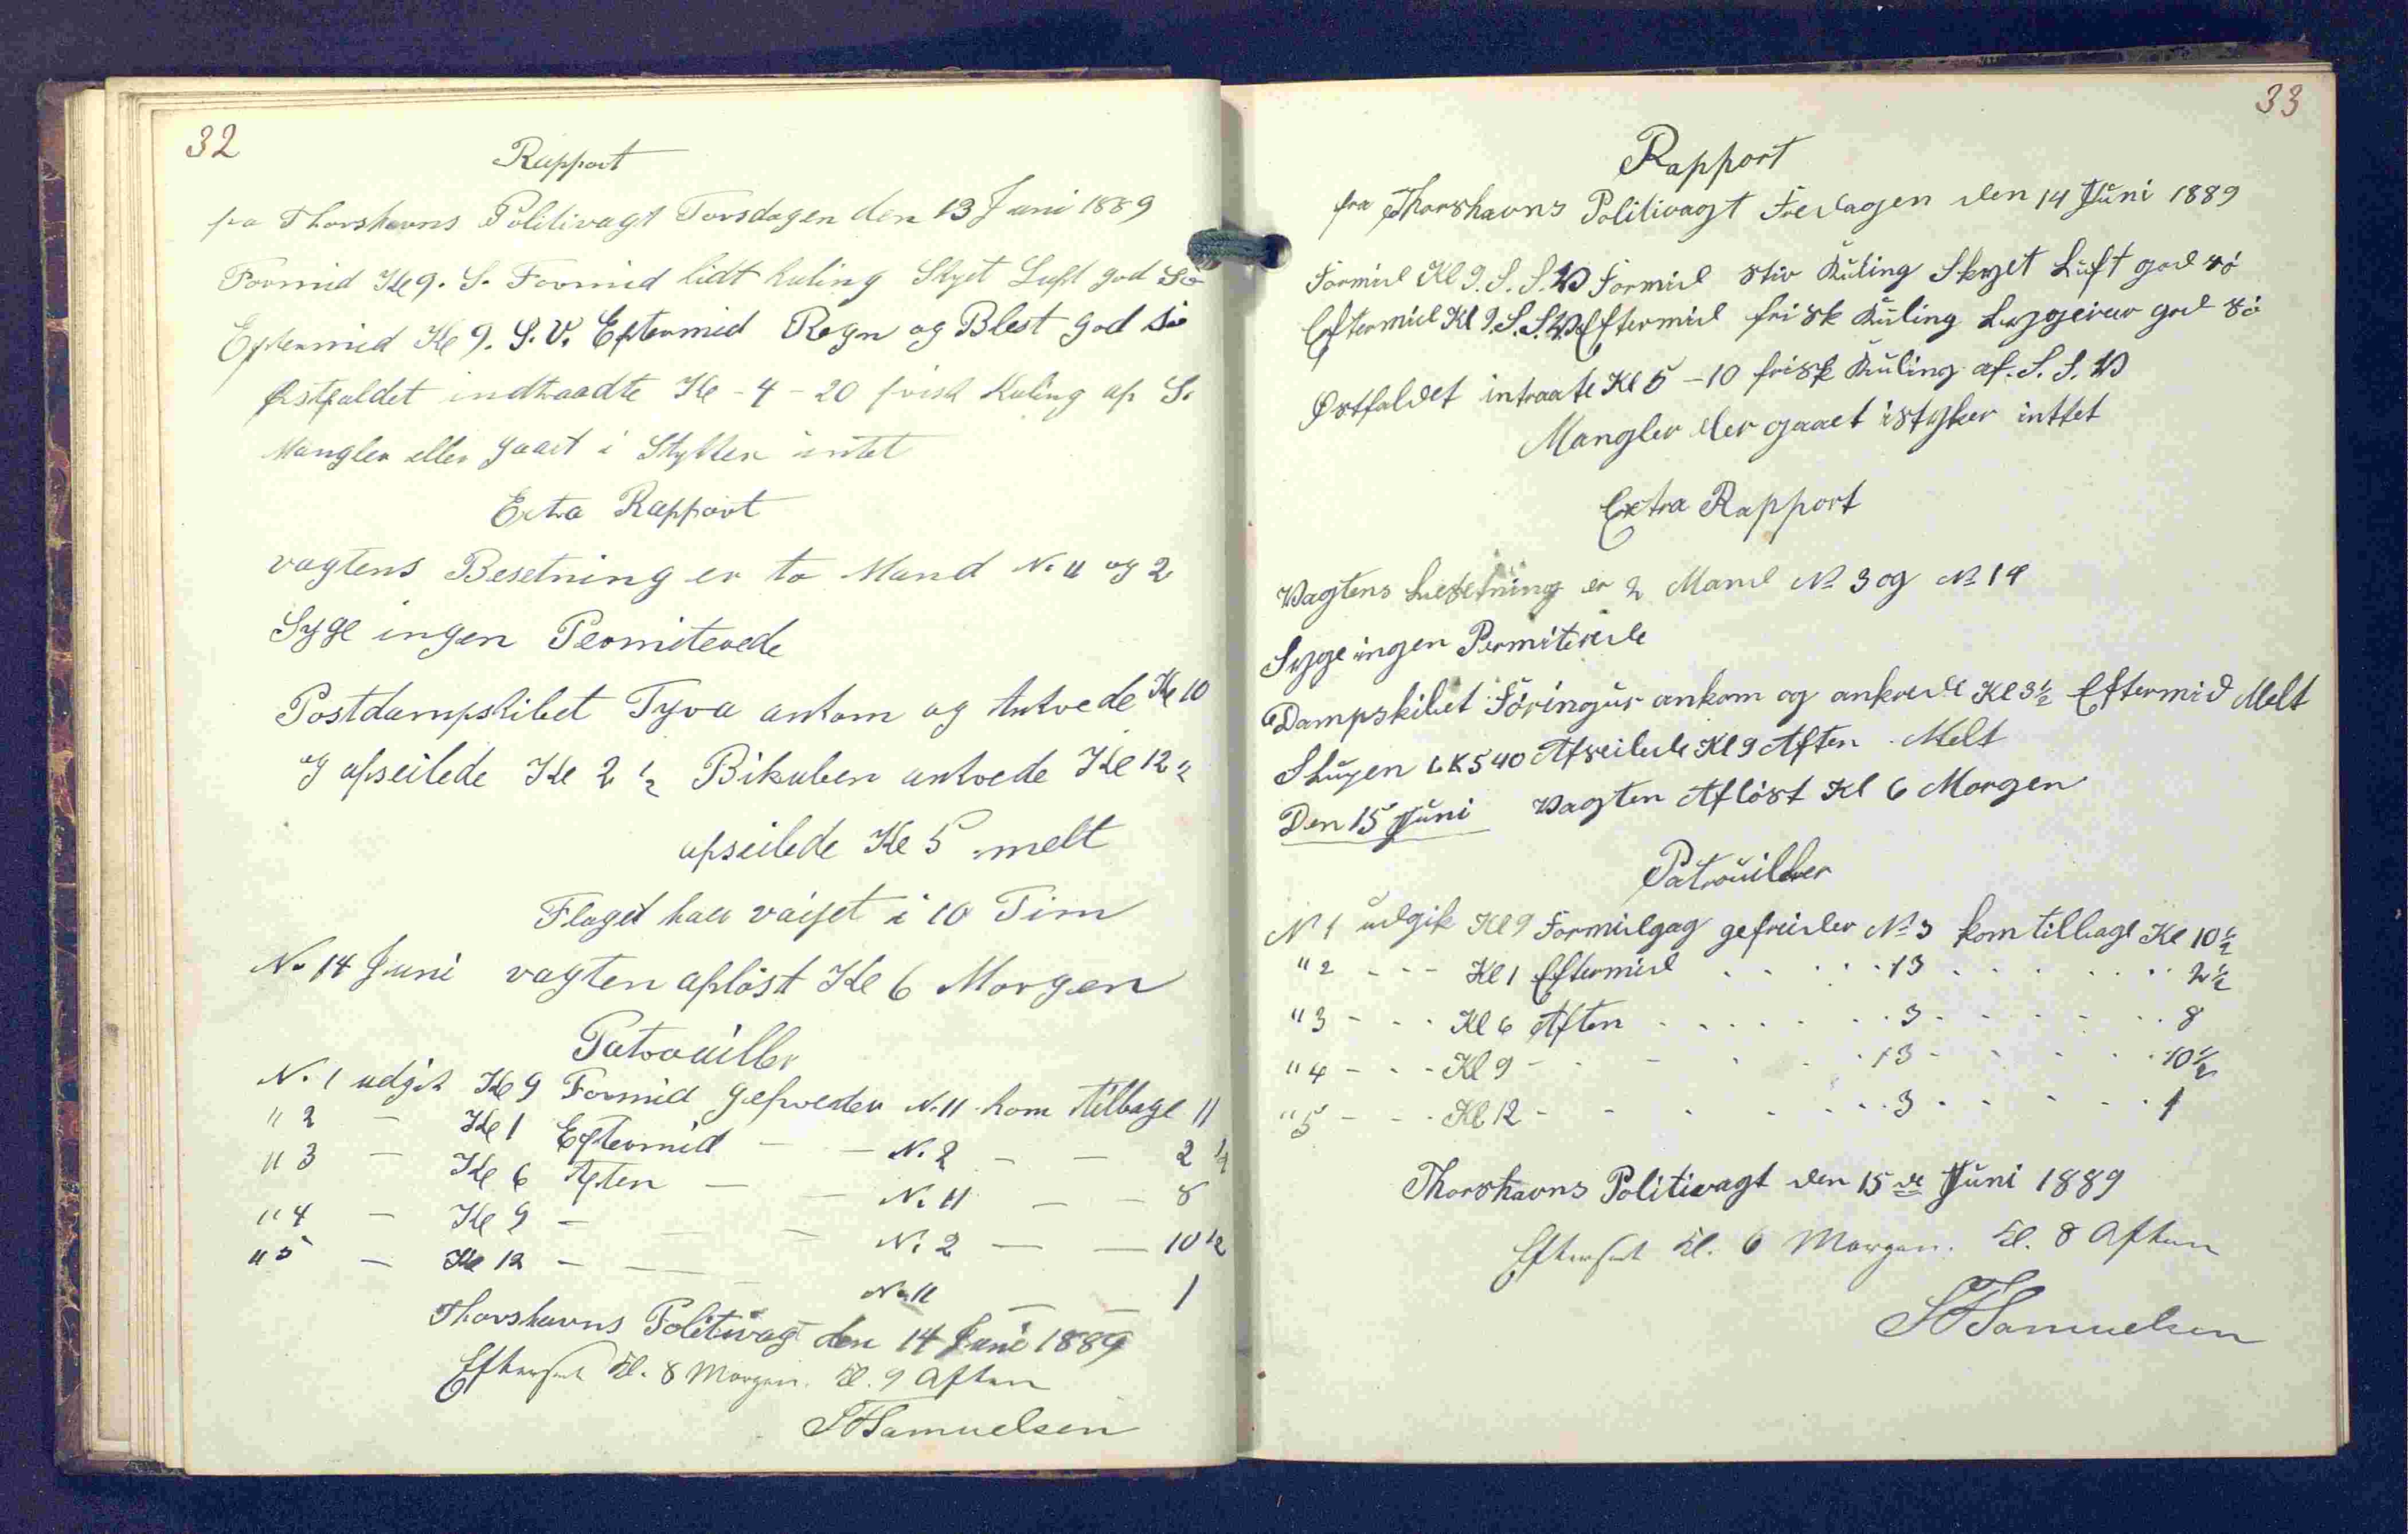 32
Rapport
fra Thorshavns Politivagt Torsdagen den 13 Juni 1889
Formid Kl 9. S. Formid lidt kuling Skyet Luft god Sö
Eftermid Kl 9. S. V. Eftermid Regn og Blest god Sö
Østfaldet indtraadte Kl - 4 - 20 frisk Kuling af S.
Mangler eller gaaet i Stykker intet
Extra Rapport
vagtens Besetning er to Mand N. 11 og 2
Syge ingen Permiterede
Postdampskibet Tyra ankom og Ankrede Kl 10
og afseilede Kl 2 ½ Bikuben ankrede Kl 12 ½
afseilede Kl 5 melt
Flaget har vaiet i 10 Tim
N. 14 Juni vagten aflöst Kl 6 Morgen
Patrouiller
N. 1 udgik Kl 9 Formid gefreider N. 11 kom tilbage 11
" 2 — Kl 1 Eftermid — — N. 2 — — 2 ½
" 3 — Kl 6 Aften — — N. 11 — — 8
" 4 — Kl 9 — — — N. 2 — — 10 ½
" 5 — Kl 12 — — — N. 11 — — 1
Thorshavns Politivagt den 14 Juni 1889
Efterseet Kl. 8 Morgen. Kl. 9 Aften
Samuelsen
33
Rapport
fra Thorshavns Politivagt Fredagen den 14 Juni 1889
Formid Kl 9. S. S. W Formid stiv Kuling Skyet Luft god sö
Eftermid Kl 9. S. S. W Eftermid frisk Kuling god sö
Østfaldet intraate Kl 5 - 10 frisk Kuling af. S. S. W
Mangler eler gaaet istyker inttet
Extra Rapport
Wagtens besetning er 2 Mand No 3 og No 14
Syge ingen Permiterede
Dampskibet Föringur ankom og ankrede Kl 3½ Eftermid Melt
Slupen LK 540 Afseilede Kl 9 Aften. Melt
Den 15 Juni Wagten Aflöst Kl 6 Morgen
Patrouiller
N 1 udgik Kl 9 Formidgag gefreider No 3 kom tilbage Kl 10½
" 2 - - - Kl 1 Eftermid . . . . . 13 . . . . . . 2½
" 3 - - - Kl 6 Aften . . . . . . 3 . . . . . . 8
" 4 - - - Kl 9 - - - . . 13 - . . . . 10½
" 5 - - - Kl 12 - - . . . . 3 . . . . . 1
Thorshavns Politivagt den 15 de Juni 1889
Efterseet Kl. 6 Morgen. Kl. 8 Aften
Samuelsen